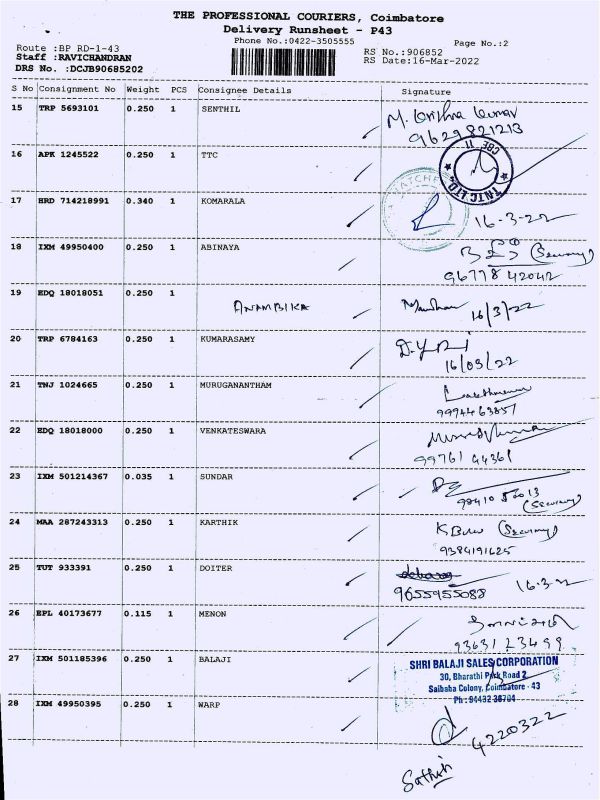 THE PROFESSIONAL COURIERS, Coimbatore
Delivery Runsheet - P43
Phone No.:0422-3505555
Page No.:2
Route :BP RD-1-43
Staff :RAVICHANDRAN
DRS No. :DCJB90685202
RS No.:906852
RS Date:16-Mar-2022
S No Consignment No Weight PCS Consignee Details Signature
15 TRP 5693101 0.250 1 SENTHIL M. Krishna Kumar
9629821213
16 APK 1245522 0.250 1 TTC
CBE 11
TNTC LTD.
17 HRD 714218991 0.340 1 KOMARALA 16-3-22
18 IXM 49950400 0.250 1 ABINAYA (Security)
9677842042
19 EDQ 18018051 0.250 1 ANAMBIKA 16/3/22
20 TRP 6784163 0.250 1 KUMARASAMY
16/03/22
21 TNJ 1024665 0.250 1 MURUGANANTHAM
9994463857
22 EDQ 18018000 0.250 1 VENKATESWARA
99761 44361
23 IXM 501214367 0.035 1 SUNDAR
98410 50013
(Security)
24 MAA 287243313 0.250 1 KARTHIK (Security)
9384191625
25 TUT 933391 0.250 1 DOITER 16-3-22
9655955088
26 EPL 40173677 0.115 1 MENON
93631 23499
27 IXM 501185396 0.250 1 BALAJI SHRI BALAJI SALES CORPORATION
30, Bharathi Park Road 2
Saibaba Colony, Coimbatore - 43
Ph : 94432 36704
28 IXM 49950395 0.250 1 WARP
4220322
Sathish